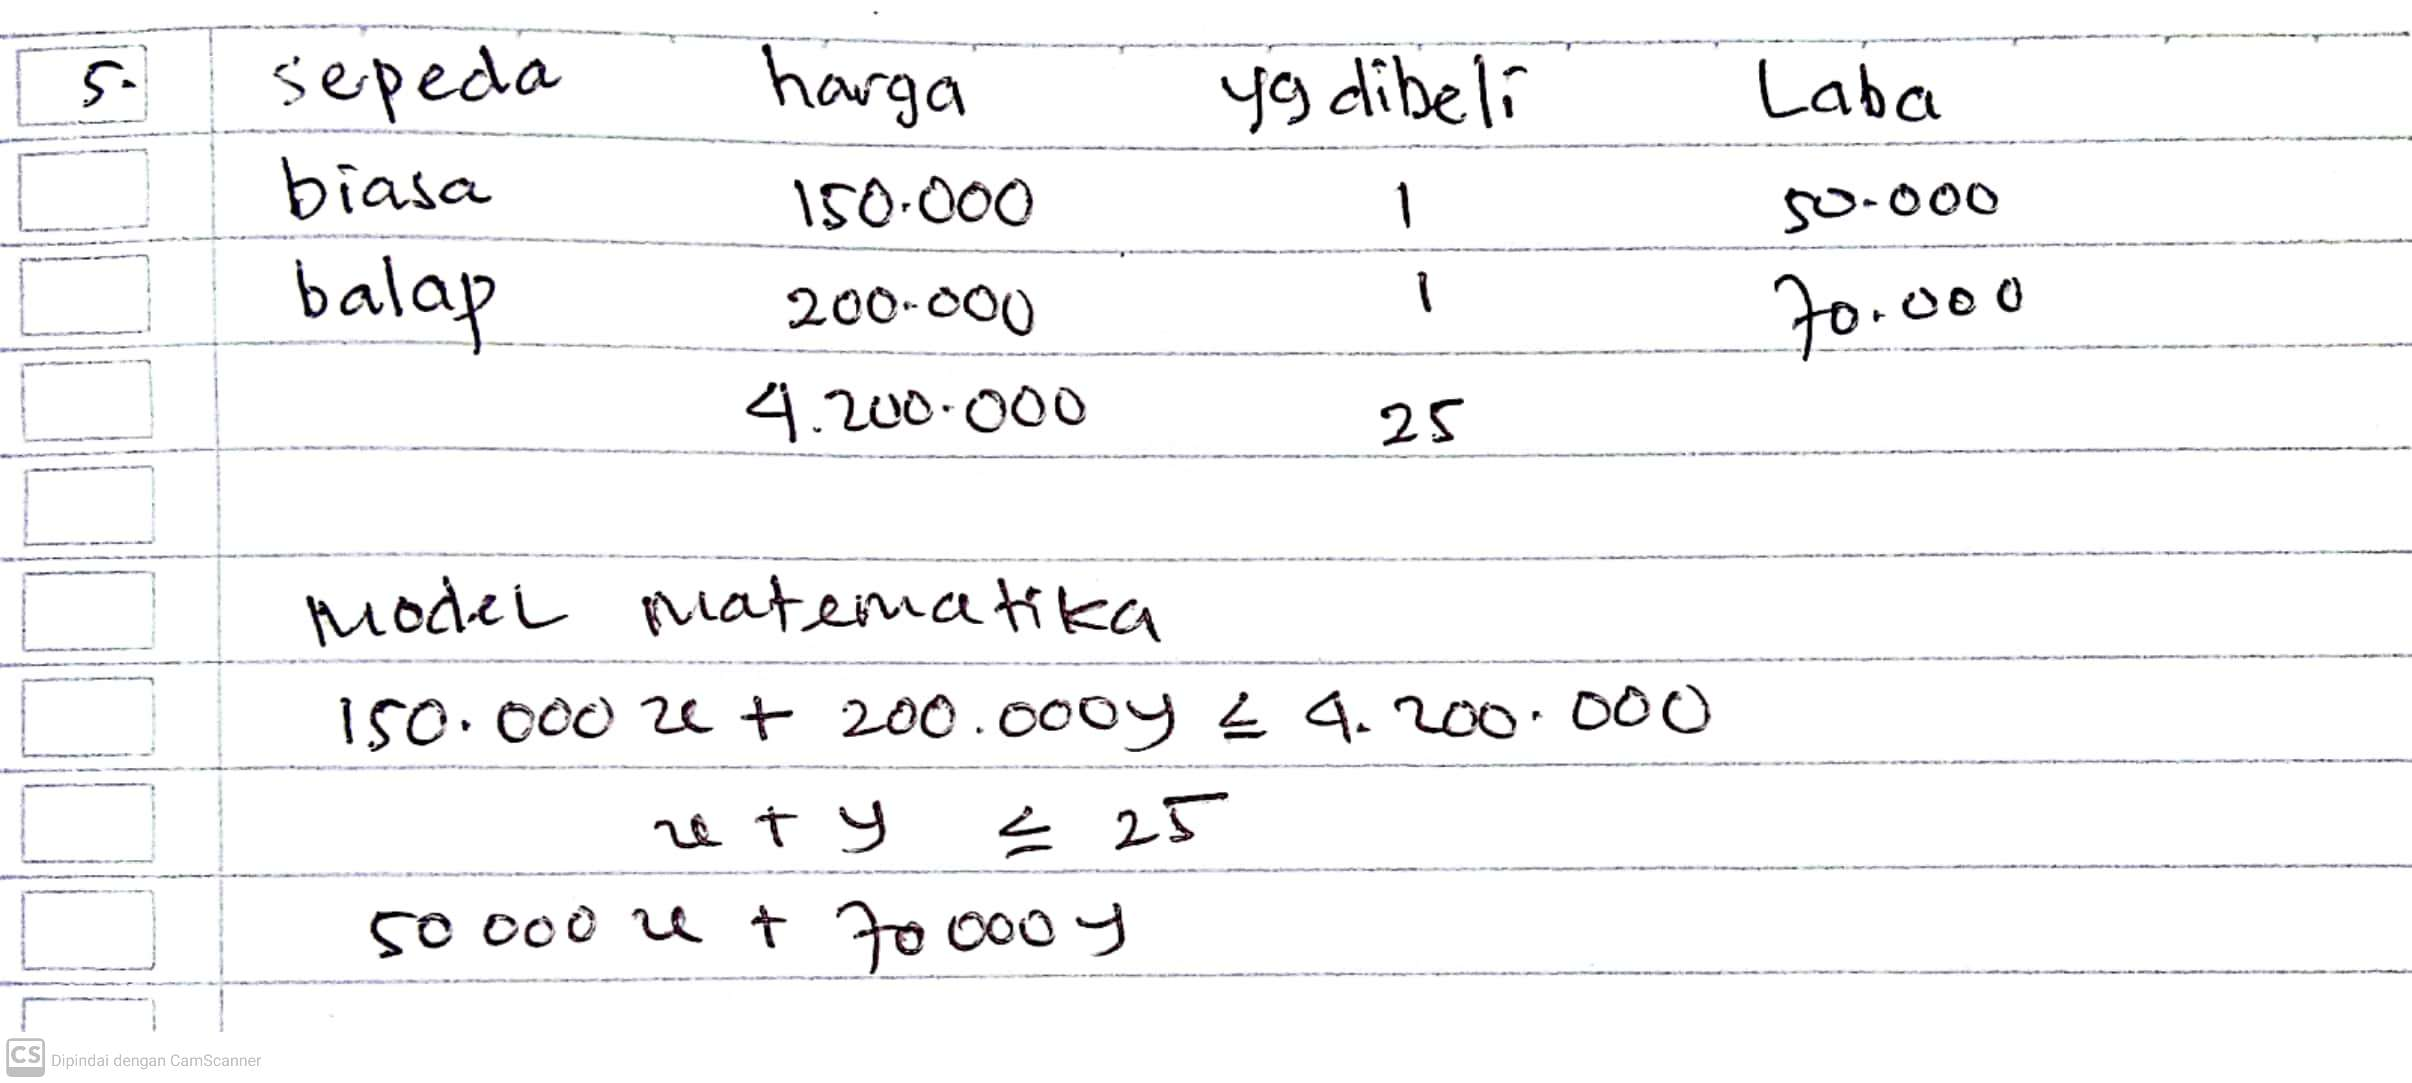 5. sepeda harga yg dibeli Laba
biasa 150.000 1 50.000
balap 200.000 1 70.000
4.200.000 25
Model Matematika
150.000 x + 200.000y ≤ 4.200.000
x + y ≤ 25
50 000 x + 70 000 y
CS Dipindai dengan CamScanner